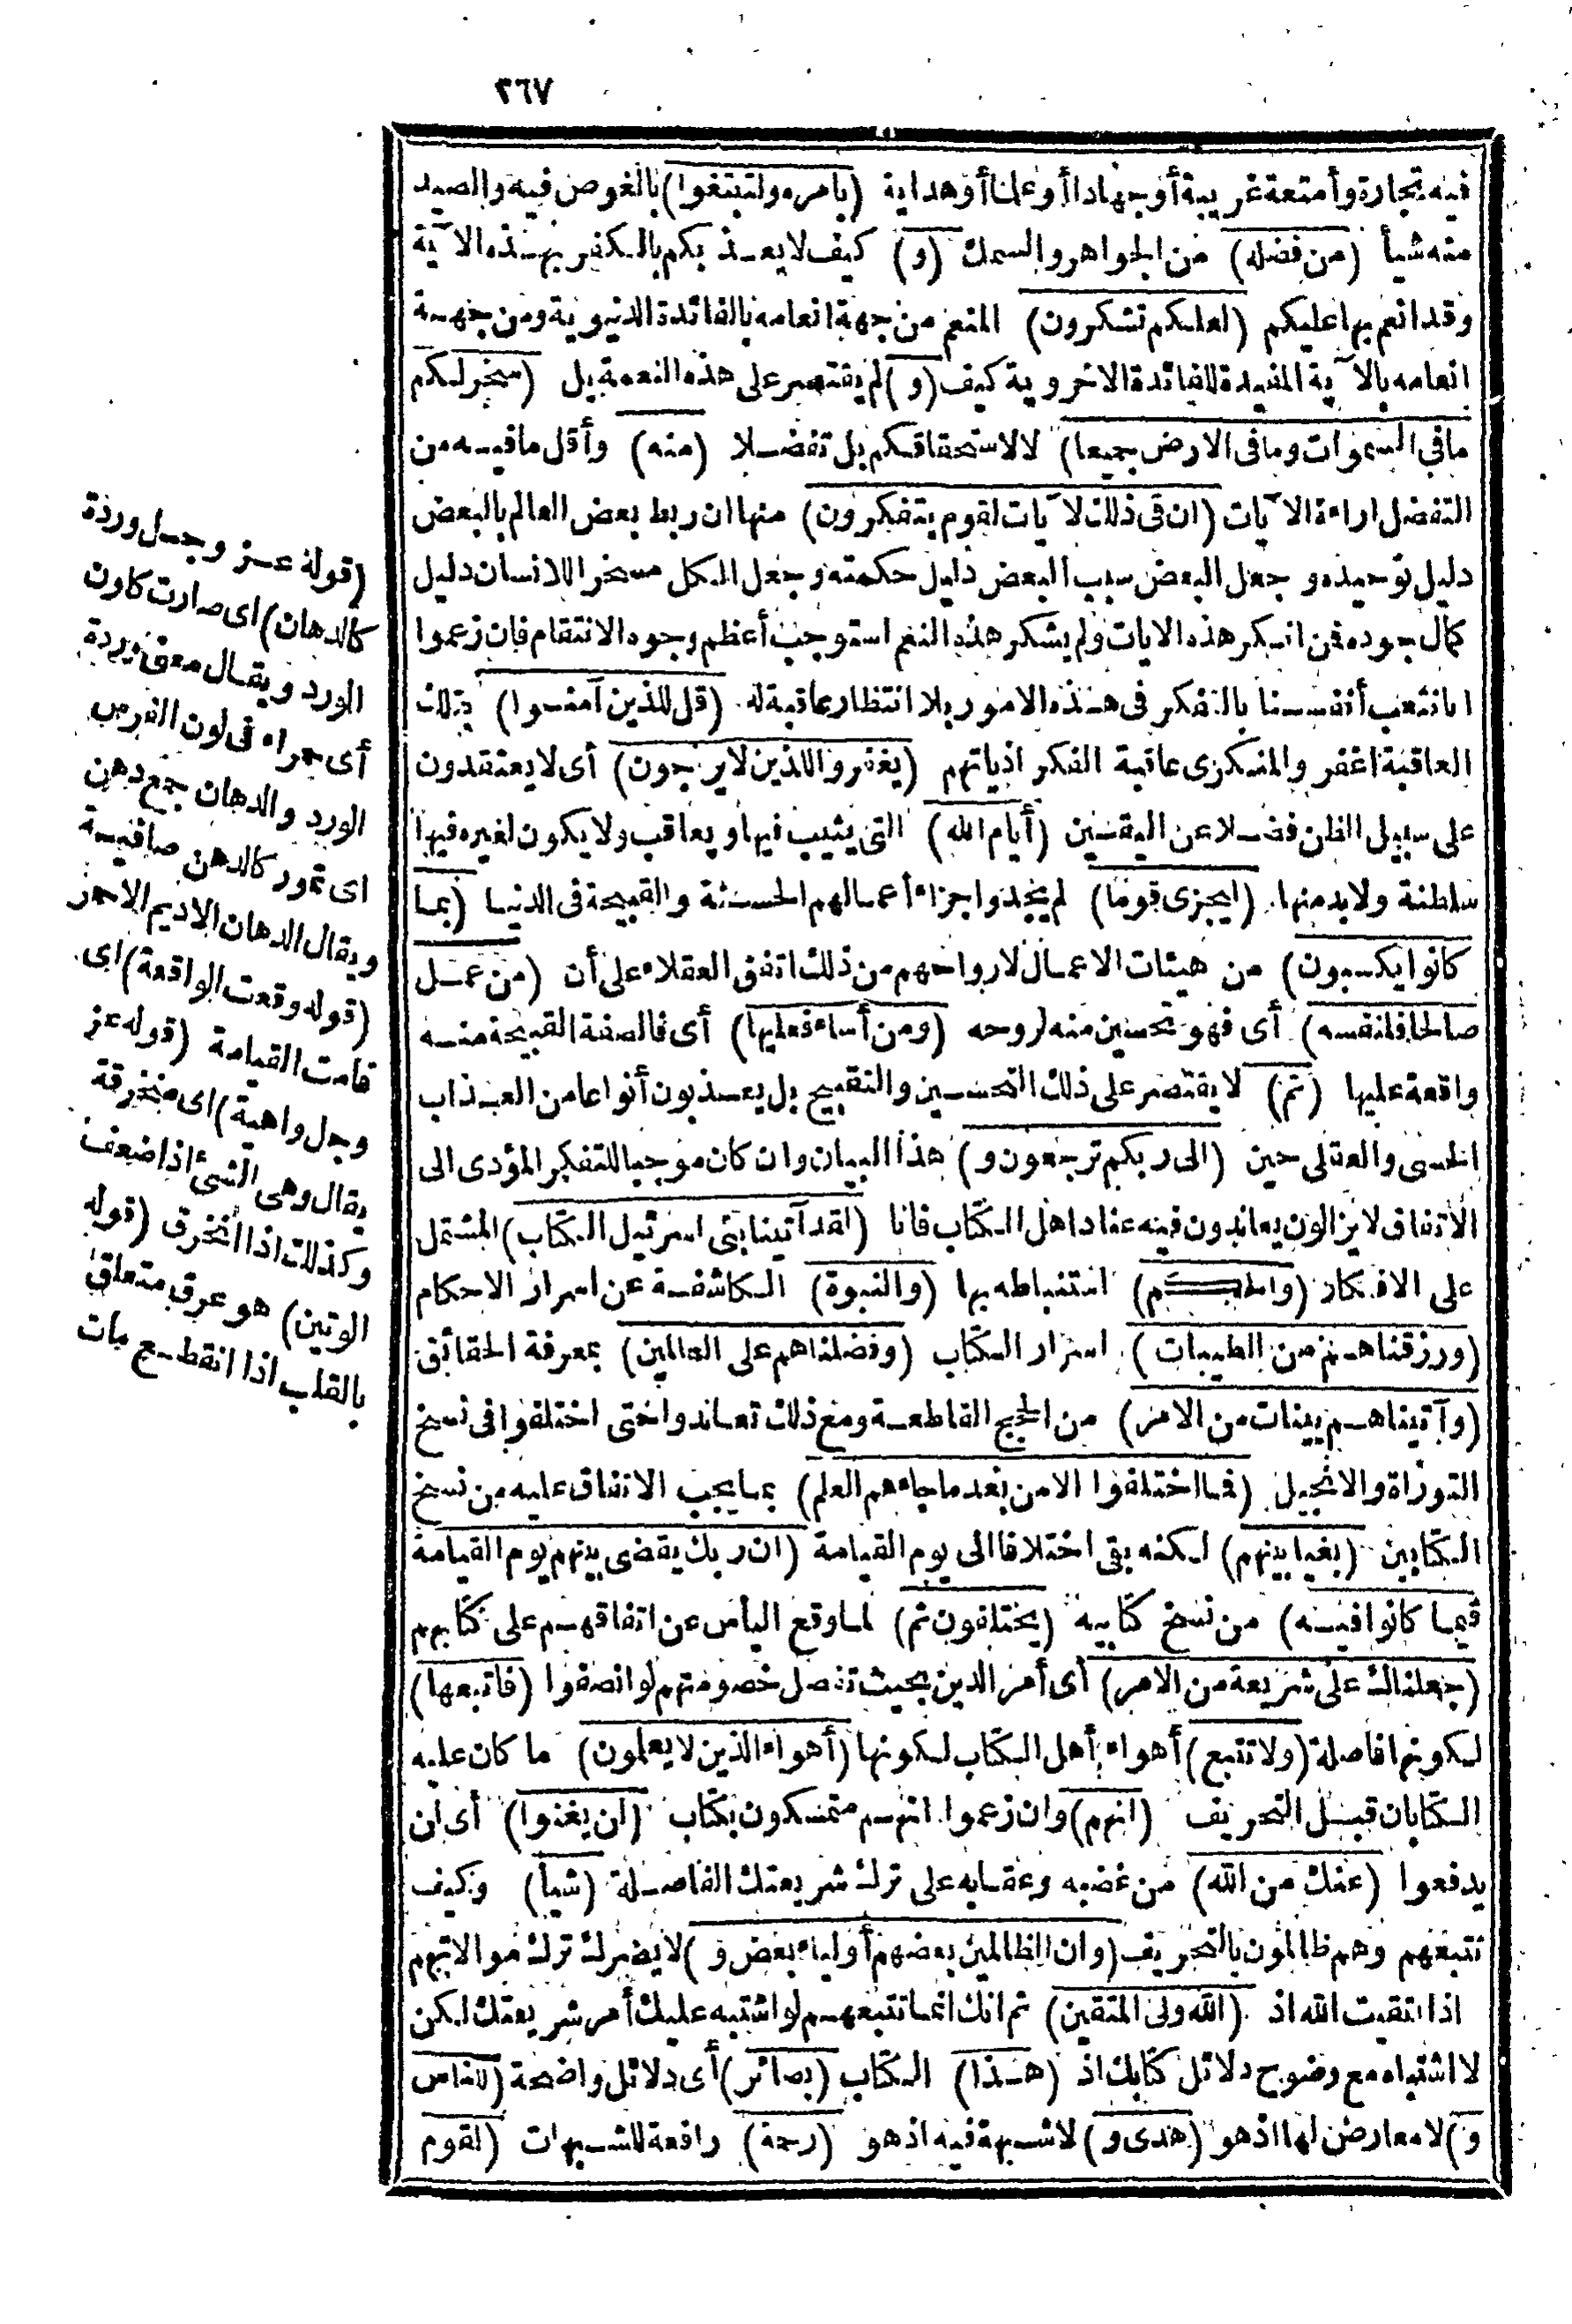 ٣٦٧
فيه تجارة وأمتعة غريبة أو جهادا أو علما أو هداية (بامره ولتبتغوا) بالغوص فيه والصيد
منه شيأ (من فضله) من الجواهر والسمك (و) كيف لا يعذبكم بالكفر بهذه الآية
وقد انعم بها عليكم (لعلكم تشكرون) المنعم من جهة انعامه بالفائدة الدنيوية ومن جهة
انعامه بالآية المفيدة للفائدة الاخروية كيف (و) لم يقتصر على هذه النعمة بل (سخر لكم
ما في السموات وما فى الارض جميعا) لا لاستحقاقكم بل تفضلا (منه) وأقل ما فيه من
التفضل اراءة الآيات (ان فى ذلك لآيات لقوم يتفكرون) منها ان ربط بعض العالم بالبعض
دليل توحيده وجعل البعض سبب البعض دليل حكمته وجعل الكل مسخرا للانسان دليل
كمال جوده فمن انكر هذه الايات ولم يشكر هذه النعم استوجب أعظم وجوه الانتقام فان زعموا
انا نتعب أنفسنا بالتفكر فى هذه الامور بلا انتظار عاقبة له (قل للذين آمنوا) بتلك
العاقبة اغفر والمنكرى عاقبة الفكر اذياتهم (يغفروا للذين لا يرجون) أى لا يعتقدون
على سبيل الظن فضلا عن اليقين (أيام الله) التى يثيب فيها ويعاقب ولا يكون لغيره فيها
سلطنة ولا بد منها (ليجزى قوما) لم يجدوا جزاء أعمالهم الحسنة والقبيحة فى الدنيا (بما
كانوا يكسبون) من هيئات الاعمال لارواحهم من ذلك اتفق العقلاء على أن (من عمل
صالحا فلنفسه) أى فهو تحسين منه لروحه (ومن أساء فعليها) أى فالصفة القبيحة منه
واقعة عليها (ثم) لا يقتصر على ذلك التحسين والتقبيح بل يعذبون أنواعا من العذاب
الحسى والعقلى حين (الى ربكم ترجعون و) هذا البيان وان كان موجبا للتفكر المؤدى الى
الاتفاق لا يزالون يعاندون فيه عناد اهل الكتاب فانا (لقد آتينا بنى اسرئيل الكتاب) المشتمل
على الافكار (والحكم) استنباطه بها (والنبوة) الكاشفة عن اسرار الاحكام
(ورزقناهم من الطيبات) اسرار الكتاب (وفضلناهم على العالمين) بمعرفة الحقائق
(وآتيناهم بينات من الامر) من الحجج القاطعة ومع ذلك تعاندوا حتى اختلفوا فى نسخ
التوراة والانجيل (فما اختلفوا الا من بعد ما جاءهم العلم) بما يجب الاتفاق عليه من نسخ
الكتابين (بغيا بينهم) لكنه بقى اختلافا الى يوم القيامة (ان ربك يقضى بينهم يوم القيامة
فيما كانوا فيه) من نسخ كتابيه (يختلفون ثم) لما وقع اليأس عن اتفاقهم على كتابهم
(جعلناك على شريعة من الامر) أى أمر الدين بحيث تفصل خصومتهم لو انصفوا (فاتبعها)
لكونها فاصلة (ولا تتبع) أهواء أهل الكتاب لكونها (أهواء الذين لا يعلمون) ما كان عليه
الكتابان قبل التحريف (انهم) وان زعموا انهم متمسكون بكتاب (لن يغنوا) أى لن
يدفعوا (عنك من الله) من غضبه وعقابه على ترك شريعتك الفاصلة (شيأ) وكيف
تتبعهم وهم ظالمون بالتحريف (وان الظالمين بعضهم أولياء بعض و) لا يضرك ترك موالاتهم
اذا اتقيت الله اذ (الله ولى المتقين) ثم انك انما تتبعهم لو اشتبه عليك أمر شريعتك لكن
لا اشتباه مع وضوح دلائل كتابك اذ (هذا) الكتاب (بصائر) أى دلائل واضحة (للناس
و) لا معارض لها اذ هو (هدى و) لا شبهة فيه اذ هو (رحمة) رافعة للشبهات (لقوم
(قوله عز وجل وردة
كالدهان) اى صارت كلون
الورد ويقال معنى وردة
أى حمراء فى لون الفرس
الورد والدهان جمع دهن
اى تمور كالدهن صافية
ويقال الدهان الاديم الاحمر
(قوله وقعت الواقعة) اى
قامت القيامة (قوله عز
وجل واهية) اى منخرقة
يقال وهى الشئ اذا ضعف
وكذلك اذا انخرق (قوله
الوتين) هو عرق متعلق
بالقلب اذا انقطع مات